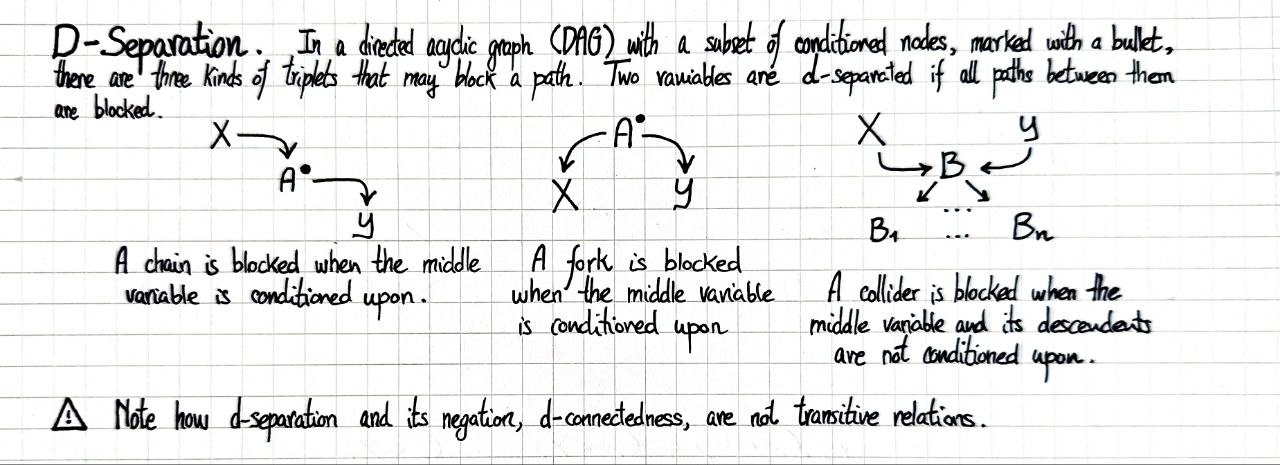 D-Separation. In a directed acyclic graph (DAG) with a subset of conditioned nodes, marked with a bullet,
there are three kinds of triplets that may block a path. Two variables are d-separated if all paths between them
are blocked.
X
A•
y
A chain is blocked when the middle
variable is conditioned upon.
A•
X y
A fork is blocked
when the middle variable
is conditioned upon
X y
B
...
B₁ ... Bn
A collider is blocked when the
middle variable and its descendents
are not conditioned upon.
⚠ Note how d-separation and its negation, d-connectedness, are not transitive relations.